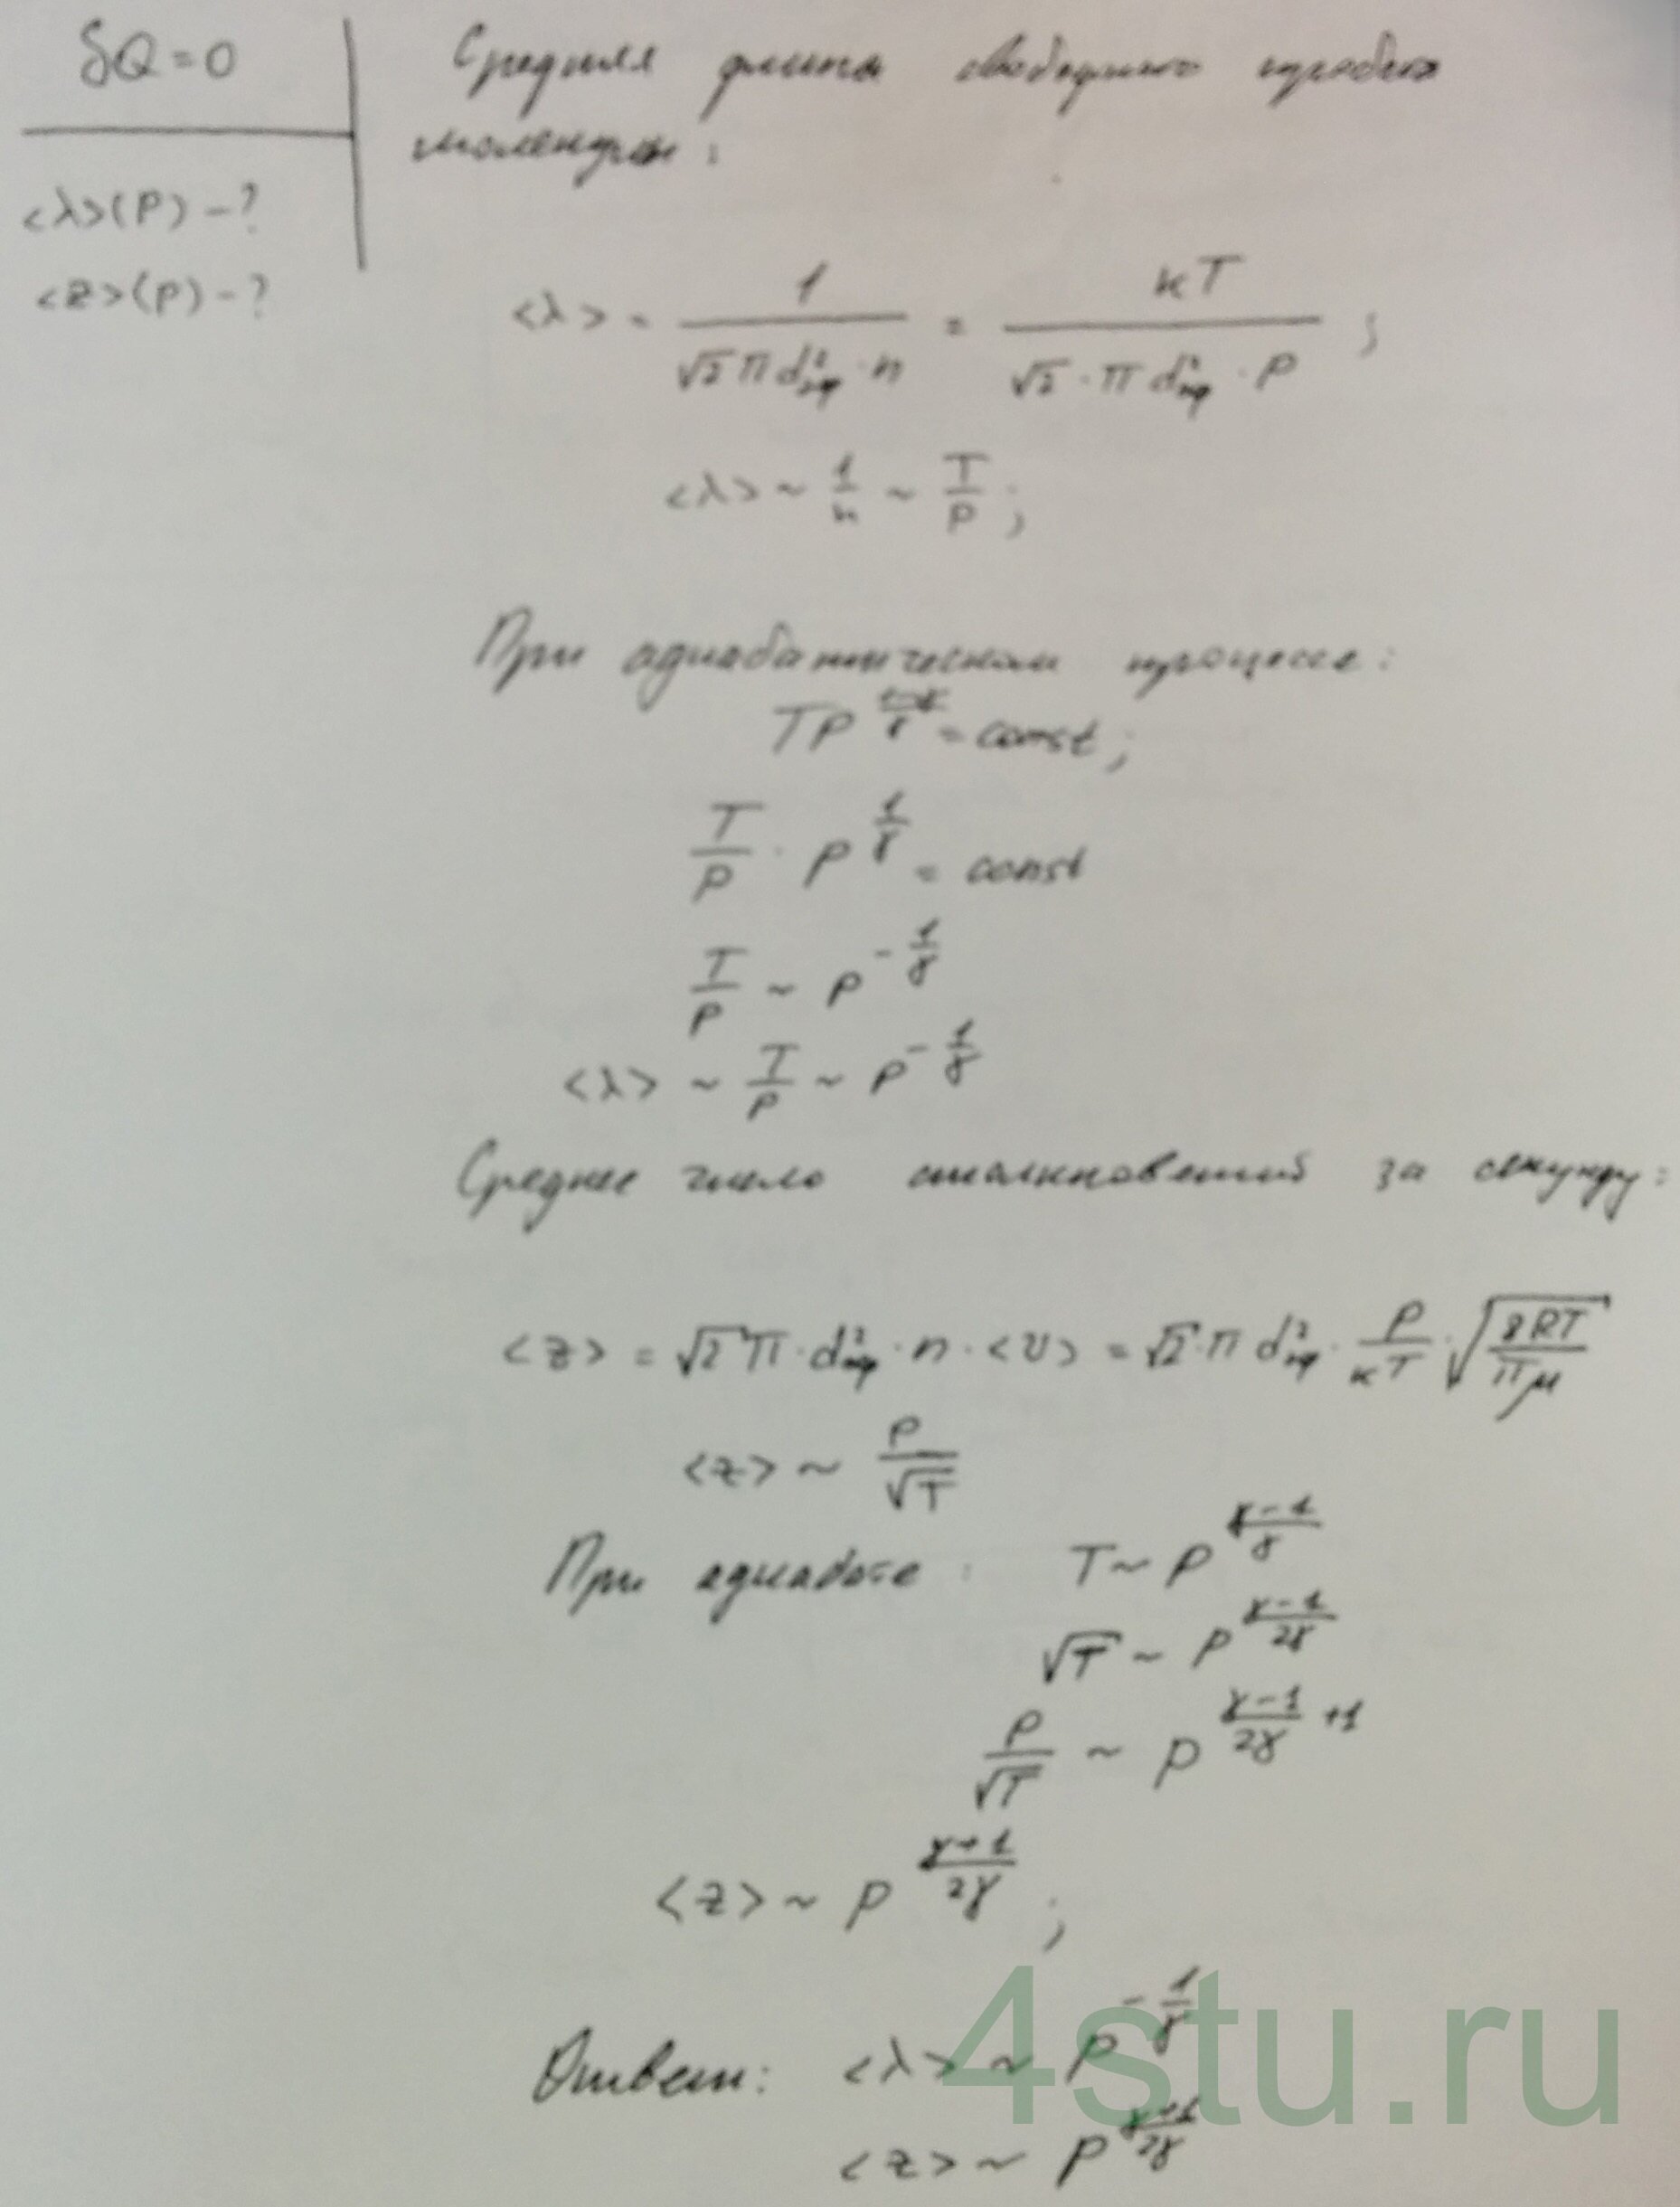 δQ = 0
<λ>(P) - ?
<z>(P) - ?
Средняя длина свободного пробега
молекулы:
<λ> = 1/(√2 π d²эф · n) = кT/(√2 · π d²эф · P) ;
<λ> ~ 1/n ~ T/P ;
При адиабатическом процессе:
TP^((1-γ)/γ) = const ;
T/P · P^(1/γ) = const
T/P ~ P^(-1/γ)
<λ> ~ T/P ~ P^(-1/γ)
Среднее число столкновений за секунду:
<z> = √2 π · d²эф · n · <v> = √2 · π d²эф · P/(кT) · √(8RT/(πμ))
<z> ~ P/√T
При адиабате : T ~ P^((γ-1)/γ)
√T ~ P^((γ-1)/2γ)
P/√T ~ P^((γ-1)/2γ +1)
<z> ~ P^((γ+1)/2γ) ;
Ответ: <λ> ~ P^(-1/γ)
<z> ~ P^((γ+1)/2γ)
4stu.ru